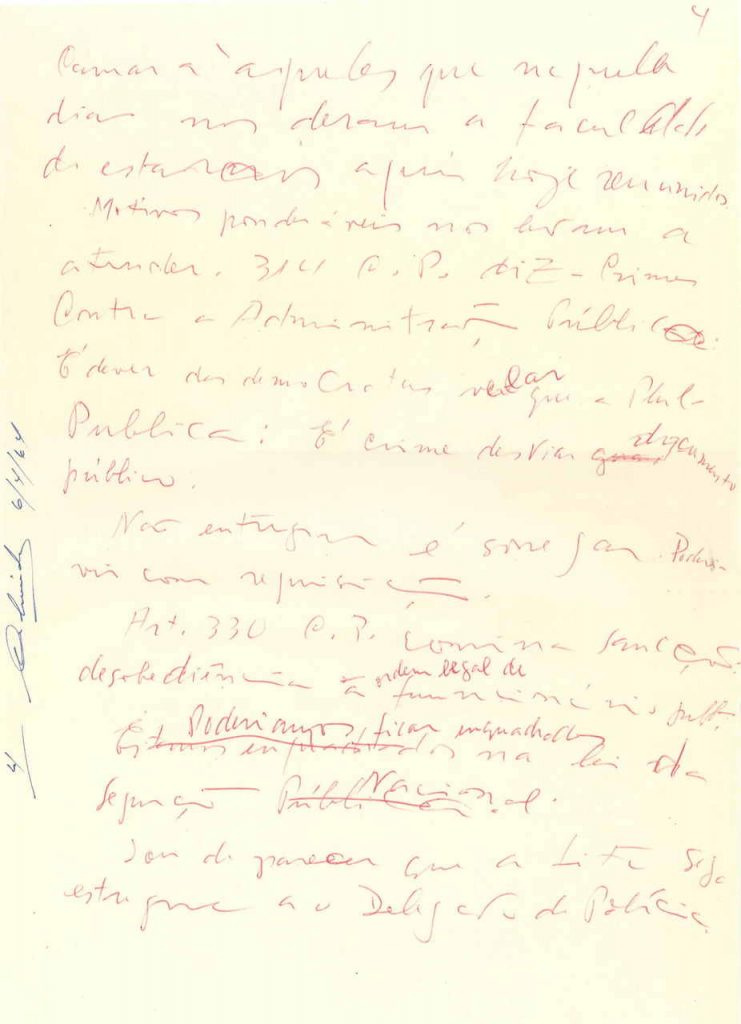 4
Camara àqueles que naquela
dias nos deram a faculdade
de estarmos aqui hoje reunidos
Motivos ponderáveis nos levam a
atender. 314 C.P. diz - Crimes
Contra a Administração Pública
É dever dos democratas velar que a
Publica: É crime desviar documento
público.
Não entregar é sonegar. Poderia
vir com requisição.
Art. 330 C.P. comina sanção
desobediência à ordem legal de funcionário públ.
Poderíamos ficar enquadrados
na lei da
Segurança Nacional.
Sou de parecer que a lista seja
entregue ao Delegado de Polícia.
4 6/4/64